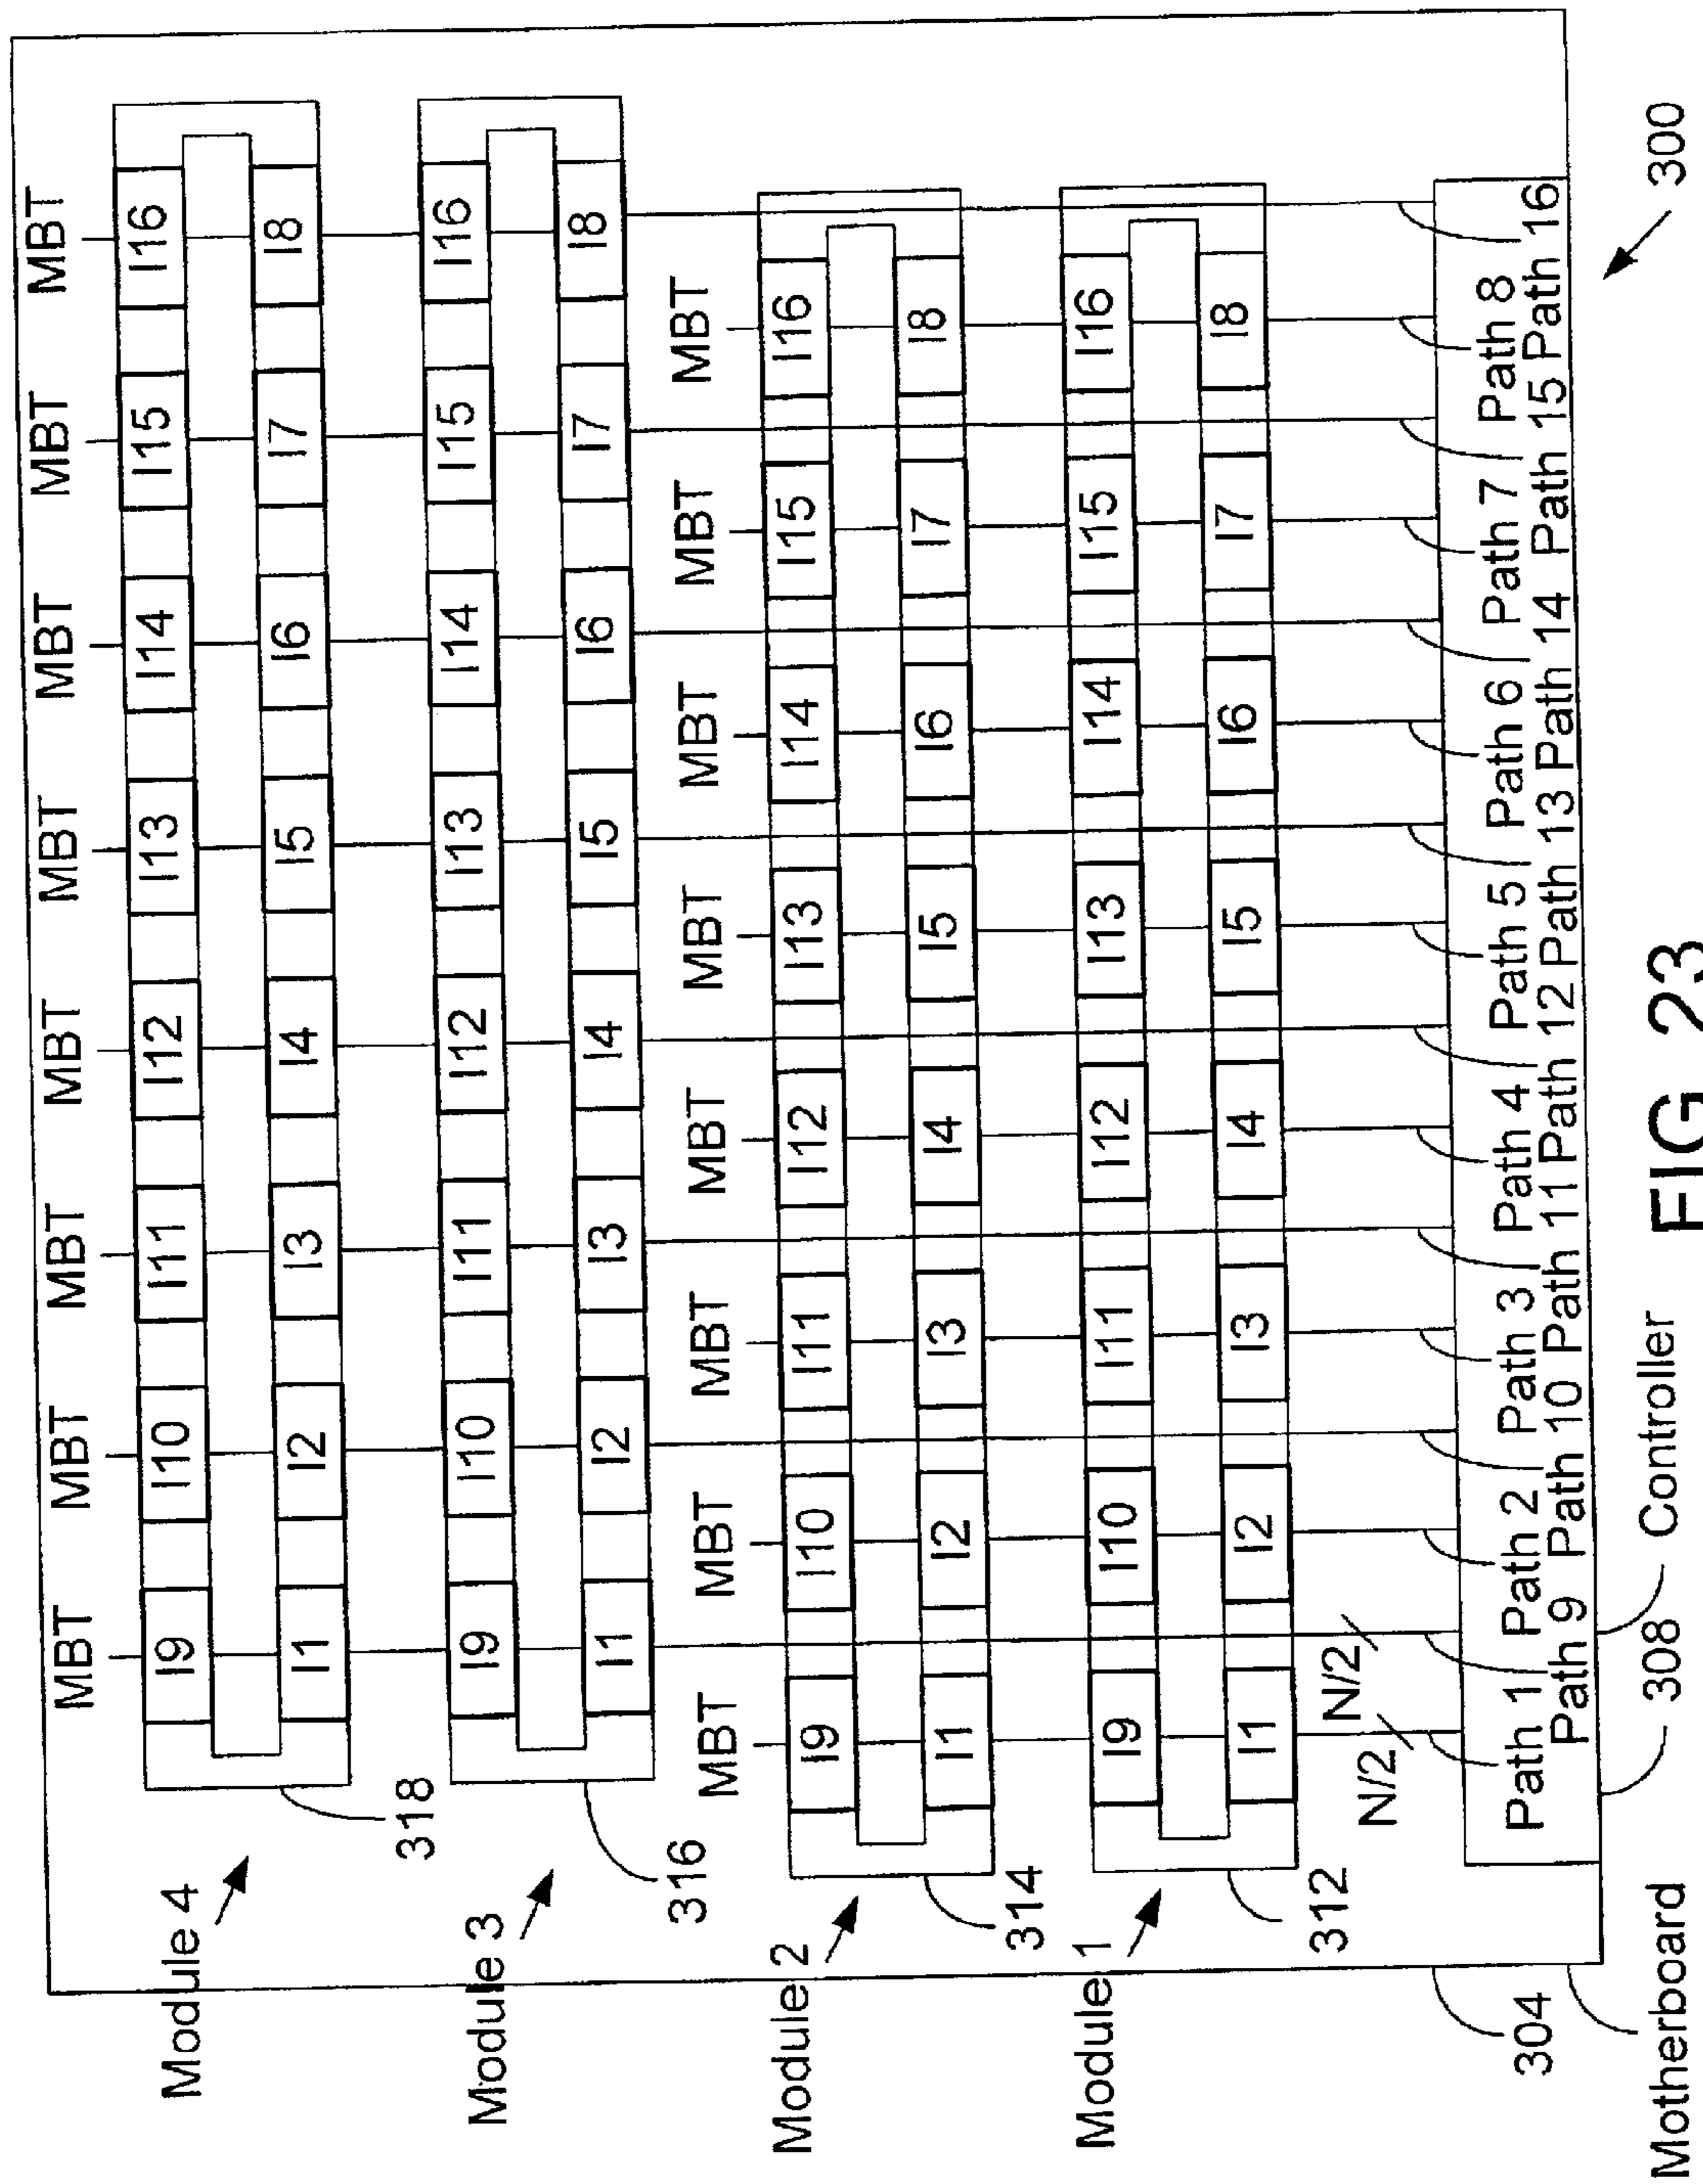 MBT MBT MBT MBT MBT MBT MBT MBT
Module 4
I9 I10 I11 I12 I13 I14 I15 I16
I1 I2 I3 I4 I5 I6 I7 I8
318
Module 3
I9 I10 I11 I12 I13 I14 I15 I16
I1 I2 I3 I4 I5 I6 I7 I8
316
MBT MBT MBT MBT MBT MBT MBT MBT
Module 2
I9 I10 I11 I12 I13 I14 I15 I16
I1 I2 I3 I4 I5 I6 I7 I8
314
Module 1
I9 I10 I11 I12 I13 I14 I15 I16
I1 I2 I3 I4 I5 I6 I7 I8
312
N/2 N/2
Path 1 Path 2 Path 3 Path 4 Path 5 Path 6 Path 7 Path 8
Path 9 Path 10 Path 11 Path 12 Path 13 Path 14 Path 15 Path 16
304
Motherboard
308
Controller
300
FIG 23